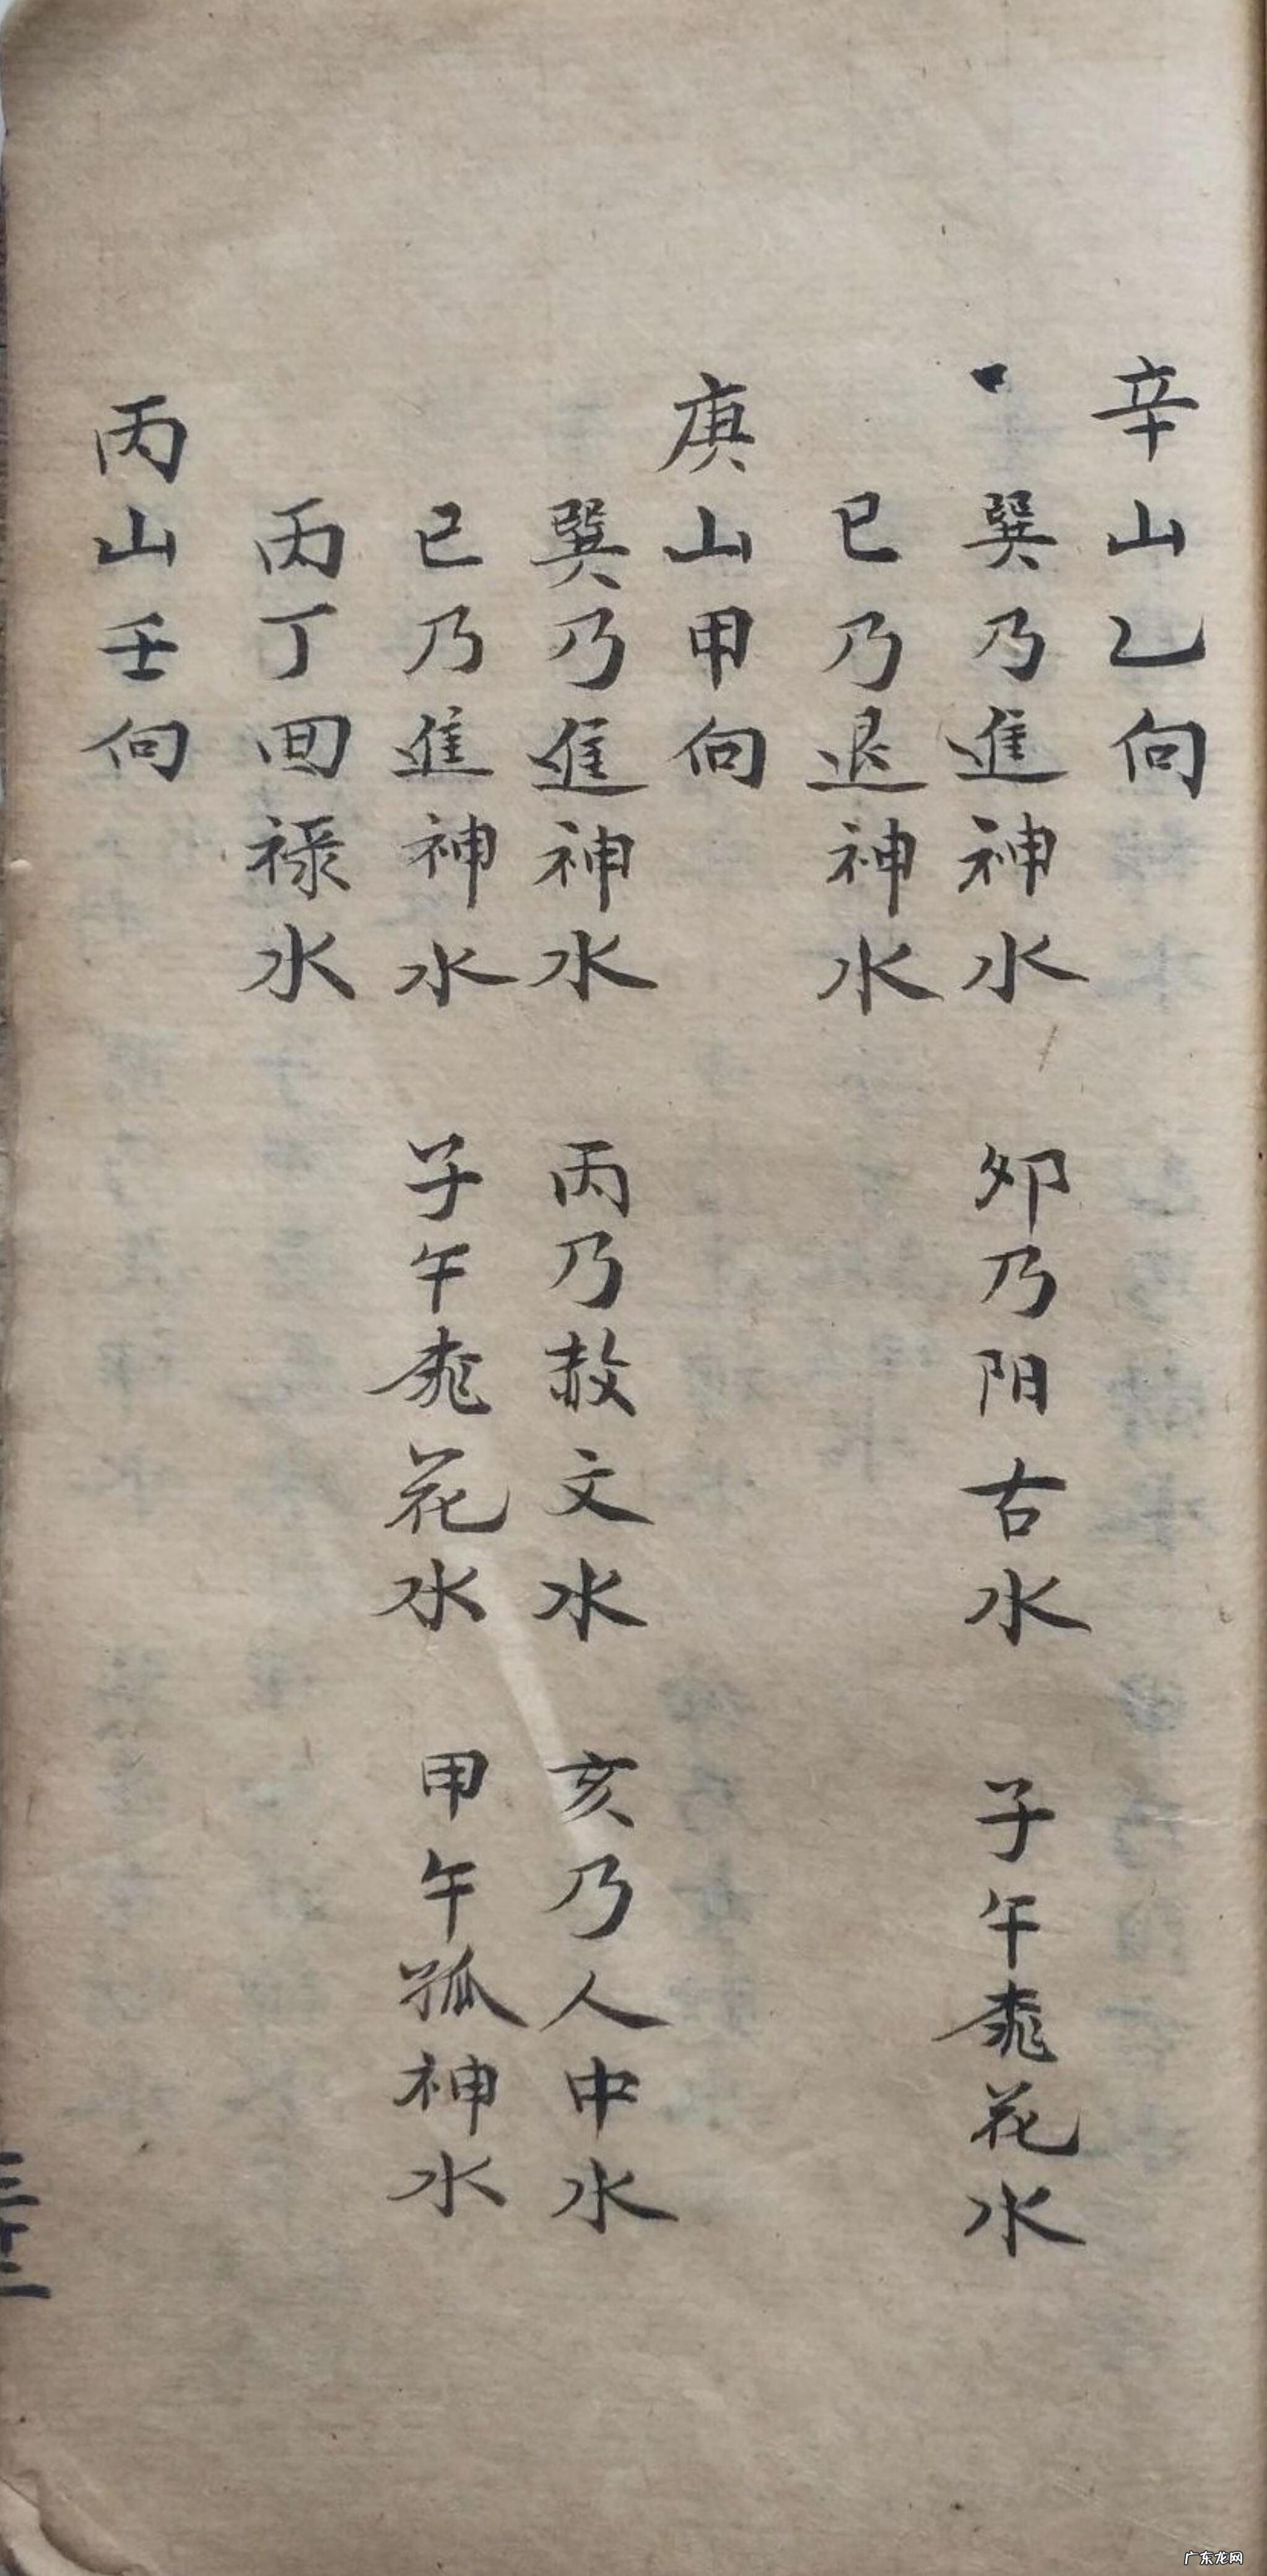 辛山乙向
巽乃進神水 卯乃阳古水 子午桃花水
巳乃退神水
庚山甲向
巽乃進神水 丙乃赦文水 亥乃人中水
巳乃進神水 子午桃花水 甲午孤神水
丙丁回禄水
丙山壬向
三十二
广东龙网